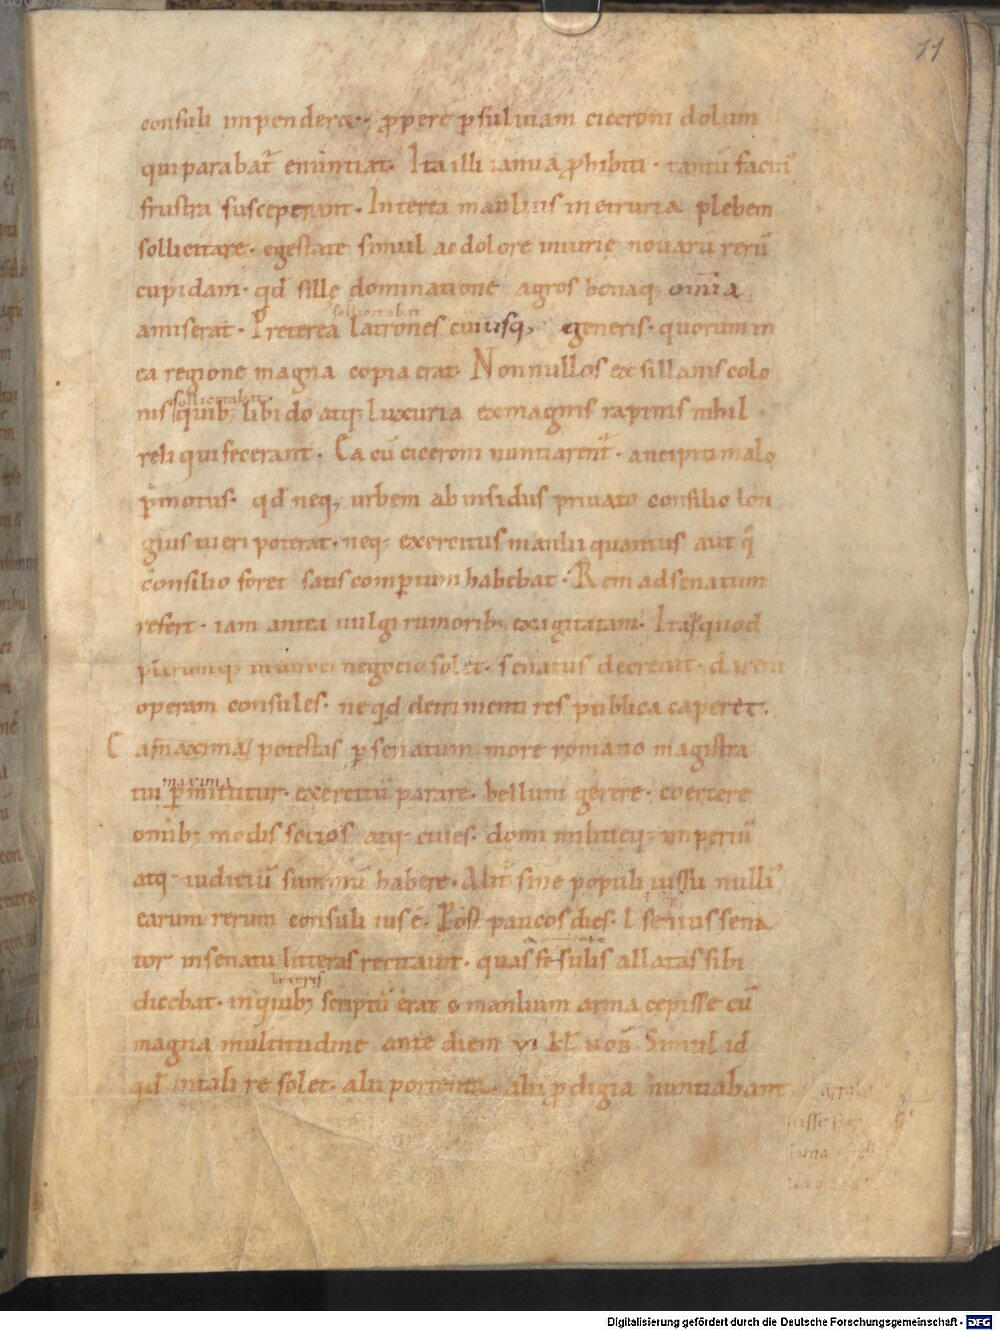 11
consuli impenderæ · ꝓpere ꝑ fuluiam ciceroni dolum
qui parabat᷑ enuntiat · Ita illi ianua ꝓhibiti · tantū facin᷒
frustra susceperant · Interea manlius in etruria plebem
sollicitare · egestate simul ac dolore iniurię nouarū rerū
cupidam · qđ sillę dominatione agros bonaq; omnia
sollicitabat
amiserat · Preterea latrones cuiusq; generis · quorum in
ea regione magna copia erat · Nonnullos ex sillanis colo
sollicitabat
nis quib; libido atq; luxuria ex magnis rapinis nihil
reliqui fecerant · Ea cū ciceroni nuntiarent᷑ · ancipiti malo
ꝑmotus · qđ neq; urbem ab insidiis priuato consilio lon
gius tueri poterat · neq; exercitus manlii quantus aut q̄
consilio foret satis comꝑtum habebat · Rem ad senatum
refert · iam antea uulgi rumorib; exagitatam · Itaq; quod
plerumq; in atroci negocio solet · senatus decreuit · darent
operam consules · ne qđ detrimenti res publica caperet ·
Ea maxima potestas ꝑ senatum more romano magistra
maxima
tui ꝑmittitur · exercitū parare · bellum gerere · coercere
omīb; modis socios atq; ciues · domi militieq; imperiū
atq; iudiciū summū habere · Alit᷑ sine populi iussu nulli᷒
earum rerum consuli ius ē · Post paucos dies · L senius sena
tor in senatu litteras recitauit · quas fęsulis allatas sibi
litteris
dicebat · in quib; scriptū erat C manlium arma cepisse cū
magna multitudine ante diem VI kł noƀ · Simul id
qđ in tali re solet · alii portenta · alii ꝓdigia nuntiabant
Digitalisierung gefördert durch die Deutsche Forschungsgemeinschaft - DFG